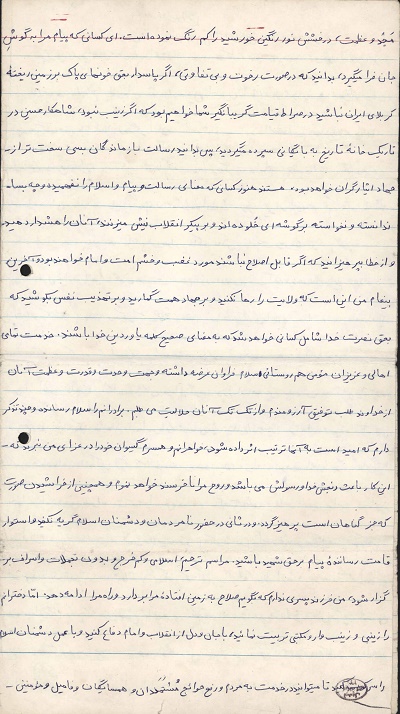 مجد و عظمت، درخشش نور رنگین خورشید را کم رنگ نموده است. ای کسانی که پیام مرا به گوش
جان فرا میگیرد، بدانید که در صورت رخوت و بی تفاوتی، اگر پاسدار بحق خونهای پاک بر زمین ریخته
کربلای ایران نباشید در صراط قیامت گریبانگیر شما خواهیم بود که اگر زینب نبود، شاهکار حسین در
تاریک خانهٔ تاریخ به بایگانی سپرده میگردید، پس بدانید رسالت بازماندگان بسی سخت تر از
جهاد ایثارگران خواهد بود. هستند هنوز کسانی که معنای رسالت و پیام و اسلام را نفهمیده و چه بسا
ندانسته و نخواسته بر گوشه ای خزیده اند و بر پیکر انقلاب نیش میزنند، آنان را هشدار دهید
و از خطا بپرهیزانید که اگر قابل اصلاح نباشند مورد غضب و خشم امت و امام خواهند بود و آخرین
پیغام من این است که ولایت را رها نکنید و بر جهاد همت گمارید و بر تهذیب نفس بکوشید که
بحق نصرت خدا شامل کسانی خواهد شد که به معنای صحیح کلمه یاور دین خدا باشند. خدمت تمامی
اهالی و عزیزان مؤمن هم روستائی سلام فراوان عرضه داشته و جهت وحدت و قدرت و عظمت آنان
از خداوند طلب توفیق آرزومندم و از تک تک آنان حلالیت می طلبم. برادرانم را سلام رسانده و چند تذکر
دارم که امید است به آنها ترتیب اثر داده شود، خواهرانم و همسرم گیسوان خود را در عزای من نبرند که
این کار باعث رنجش خدا و رسولش می باشد و روح مرا نا خرسند خواهد نمود و همچنین از خراشیدن صورت
که جزء گناهان است پرهیز گردد. و در رثای در حضور نامردمان و دشمنان اسلام گریه نکنید و استوار
قامت رسانندهٔ پیام بر حق شهید باشید. مراسم ترحیم اسلامی و کم خرج و بدون تجملات و اسراف بر
گزار شود، من فرزند پسری ندارم که بگویم سلاح به زمین افتادهٔ مرا بردارد و راه مرا ادامه دهد. اما دخترانم
را زینبی و زینب وار و مکتبی تربیت نمائید، با جان و دل از انقلاب و امام دفاع کنید و با عمل دشمنان اسلام
را تا میتوانید در خدمت به مردم و رفع حوائج مستمندان و همسایگان و فامیل و مؤمنین